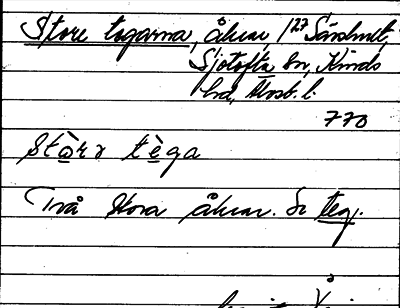 Store tegarna, åkrar, 1/27 Särshult,
Sjötofta sn, Kinds
hd, Älvsb. l.
770
Stòrɤ tèga
Två stora åkrar. Se teg.